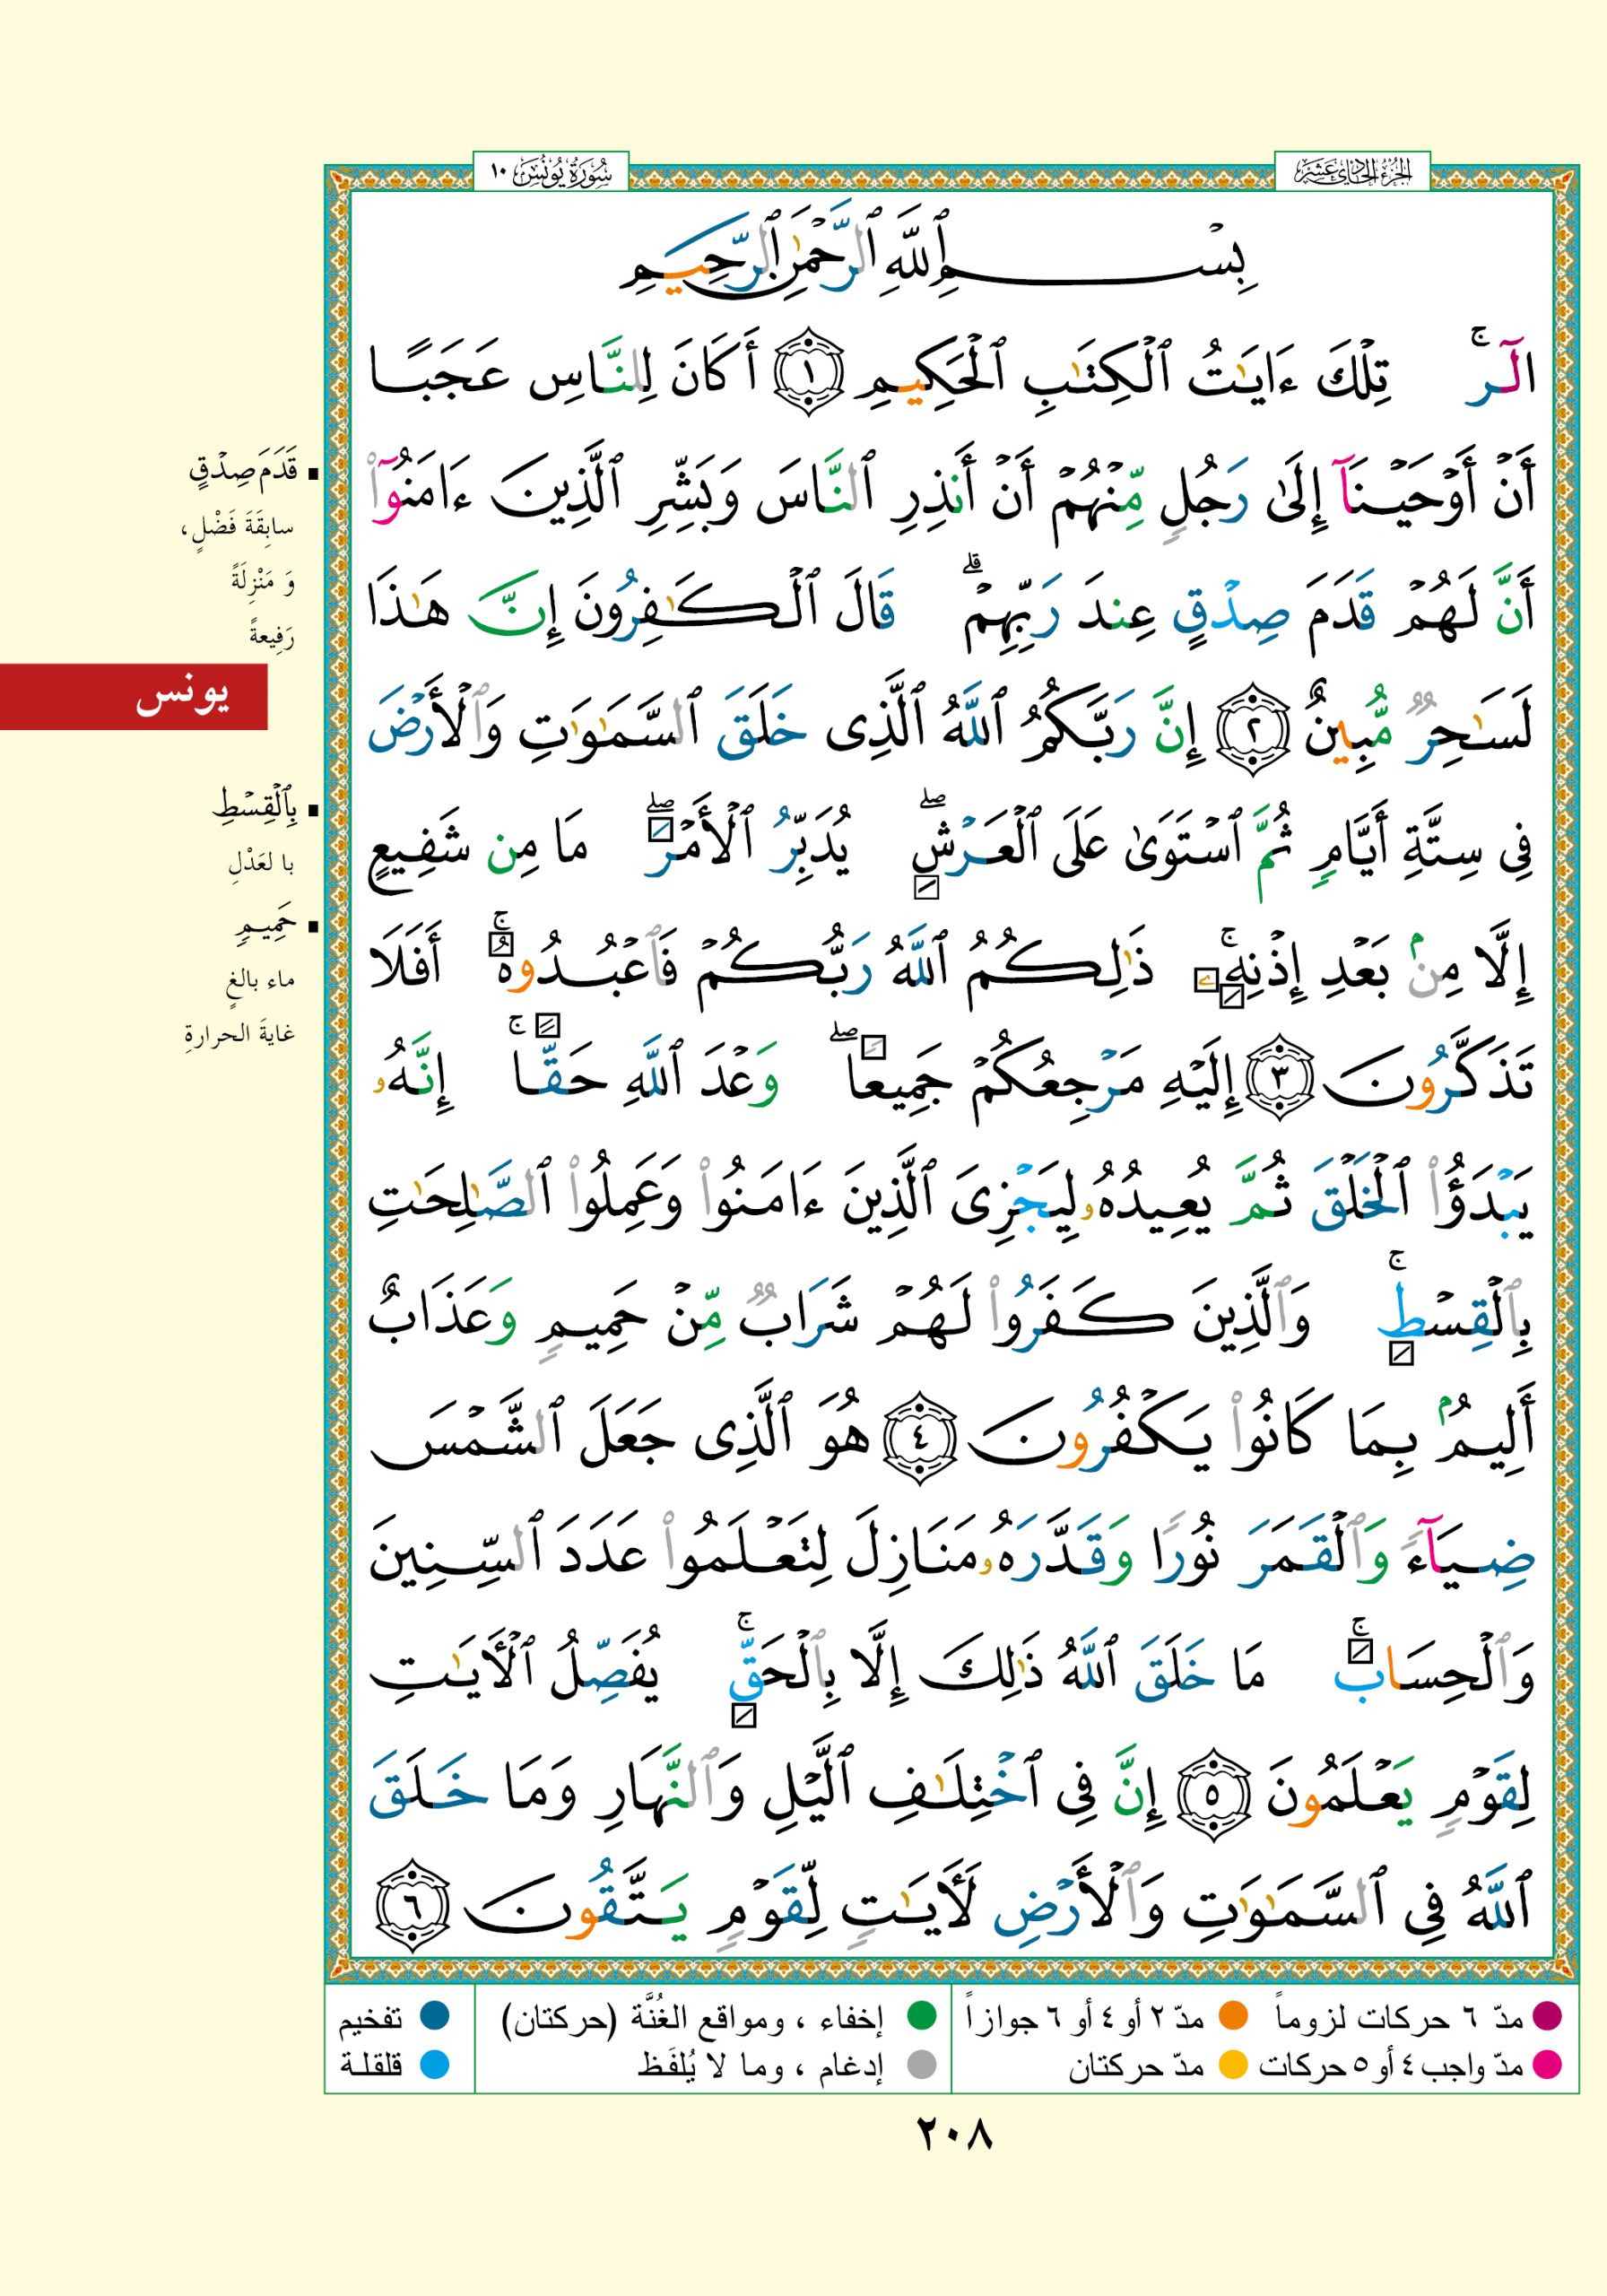 الجزء الحادي عشر
سورة يونس ١٠
بِسْمِ ٱللَّهِ ٱلرَّحْمَٰنِ ٱلرَّحِيمِ
الٓرۚ تِلْكَ ءَايَٰتُ ٱلْكِتَٰبِ ٱلْحَكِيمِ ١ أَكَانَ لِلنَّاسِ عَجَبًا
أَنْ أَوْحَيْنَآ إِلَىٰ رَجُلٍ مِّنْهُمْ أَنْ أَنذِرِ ٱلنَّاسَ وَبَشِّرِ ٱلَّذِينَ ءَامَنُوٓا۟
أَنَّ لَهُمْ قَدَمَ صِدْقٍ عِندَ رَبِّهِمْۗ قَالَ ٱلْكَٰفِرُونَ إِنَّ هَٰذَا
لَسَٰحِرٌ مُّبِينٌ ٢ إِنَّ رَبَّكُمُ ٱللَّهُ ٱلَّذِى خَلَقَ ٱلسَّمَٰوَٰتِ وَٱلْأَرْضَ
فِى سِتَّةِ أَيَّامٍ ثُمَّ ٱسْتَوَىٰ عَلَى ٱلْعَرْشِۖ يُدَبِّرُ ٱلْأَمْرَۖ مَا مِن شَفِيعٍ
إِلَّا مِنۢ بَعْدِ إِذْنِهِۦۚ ذَٰلِكُمُ ٱللَّهُ رَبُّكُمْ فَٱعْبُدُوهُۚ أَفَلَا
تَذَكَّرُونَ ٣ إِلَيْهِ مَرْجِعُكُمْ جَمِيعًاۖ وَعْدَ ٱللَّهِ حَقًّاۚ إِنَّهُۥ
يَبْدَؤُا۟ ٱلْخَلْقَ ثُمَّ يُعِيدُهُۥ لِيَجْزِىَ ٱلَّذِينَ ءَامَنُوا۟ وَعَمِلُوا۟ ٱلصَّٰلِحَٰتِ
بِٱلْقِسْطِۚ وَٱلَّذِينَ كَفَرُوا۟ لَهُمْ شَرَابٌ مِّنْ حَمِيمٍ وَعَذَابٌ
أَلِيمٌۢ بِمَا كَانُوا۟ يَكْفُرُونَ ٤ هُوَ ٱلَّذِى جَعَلَ ٱلشَّمْسَ
ضِيَآءً وَٱلْقَمَرَ نُورًا وَقَدَّرَهُۥ مَنَازِلَ لِتَعْلَمُوا۟ عَدَدَ ٱلسِّنِينَ
وَٱلْحِسَابَۚ مَا خَلَقَ ٱللَّهُ ذَٰلِكَ إِلَّا بِٱلْحَقِّۚ يُفَصِّلُ ٱلْأَيَٰتِ
لِقَوْمٍ يَعْلَمُونَ ٥ إِنَّ فِى ٱخْتِلَٰفِ ٱلَّيْلِ وَٱلنَّهَارِ وَمَا خَلَقَ
ٱللَّهُ فِى ٱلسَّمَٰوَٰتِ وَٱلْأَرْضِ لَأَيَٰتٍ لِّقَوْمٍ يَتَّقُونَ ٦
قَدَمَ صِدْقٍ
سابِقَةَ فَضْلٍ،
وَ مَنْزِلَةً
رَفِيعةً
يونس
بِٱلْقِسْطِ
با لعَدْلِ
حَمِيمٍ
ماء بالغٍ
غايةَ الحرارةِ
مدّ ٦ حركات لزوماً
مدّ ٢ أو ٤ أو ٦ جوازاً
إخفاء ، ومواقع الغُنَّة (حركتان)
تفخيم
مدّ واجب ٤ أو ٥ حركات
مدّ حركتان
إدغام ، وما لا يُلفَظ
قلقلة
٢٠٨